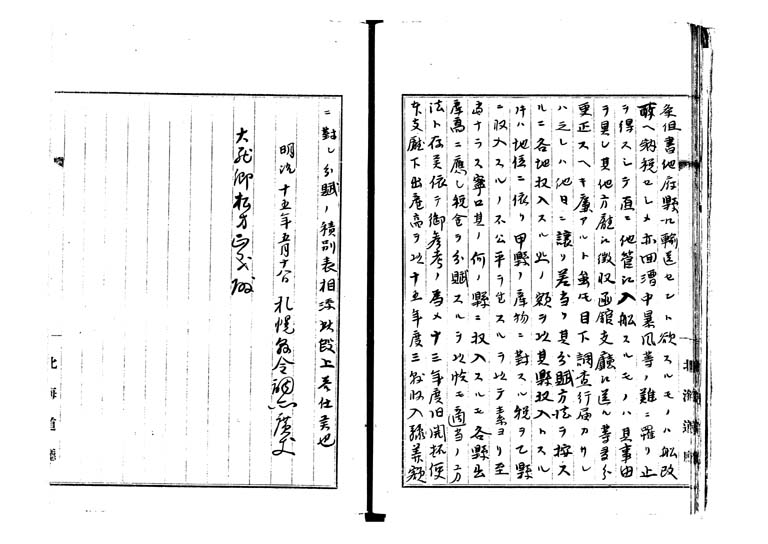 条但書他府縣ニ輸送セント欲スルモノハ船改
所ヘ納税セシメ亦回漕中暴風等ノ難ニ罹リ止
ヲ得スシテ直ニ他管ニ入船スルモノハ其事由
ヲ具シ其地方廳ニ徴収函館支廳ニ送ル等
更正スヘキ廉アルト雖モ目下調査行届カサレ
ハ之レハ他日ニ譲リ差当リ其分賦方法ヲ按ス
ルニ各地収入スル処ノ額ヲ以其縣収入トスル
片ハ地位ニ依リ甲縣ノ産物ニ対スル税ヲ乙縣
ニ収入スルノ不公平ヲ生スルヲ以テ素ヨリ至
当ナラス寧ロ其ノ何ノ縣ニ収入スルモ各縣出
産高ニ應シ税金ヲ分賦スルヲ以テ適当ノ方
法ト存美依テ御参考ノ為メ十三年度旧開拓使
本支廳下出産高ヲ以十五年度三縣収入豫算額
ニ對シ分賦ノ積別表相添此段上答仕美也
明治十五年五月十八日 札幌縣令調所廣丈
大蔵卿松方正義殿
北海道廳
北海道廳